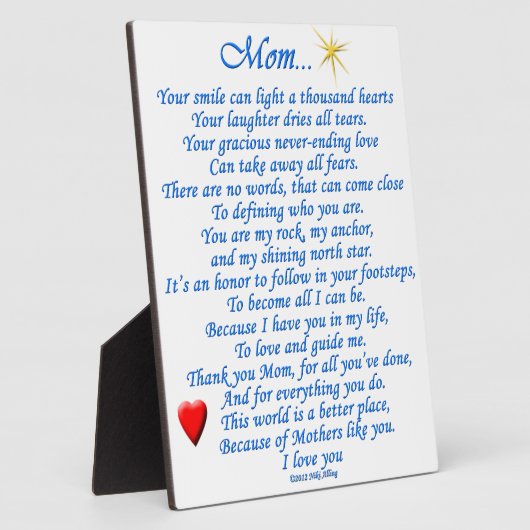 Mom...
Your smile can light a thousand hearts
Your laughter dries all tears.
Your gracious never-ending love
Can take away all fears.
There are no words, that can come close
To defining who you are.
You are my rock, my anchor,
and my shining north star.
It's an honor to follow in your footsteps,
To become all I can be.
Because I have you in my life,
To love and guide me.
Thank you Mom, for all you've done,
And for everything you do.
This world is a better place,
Because of Mothers like you.
I love you
©2012 Niki Alling